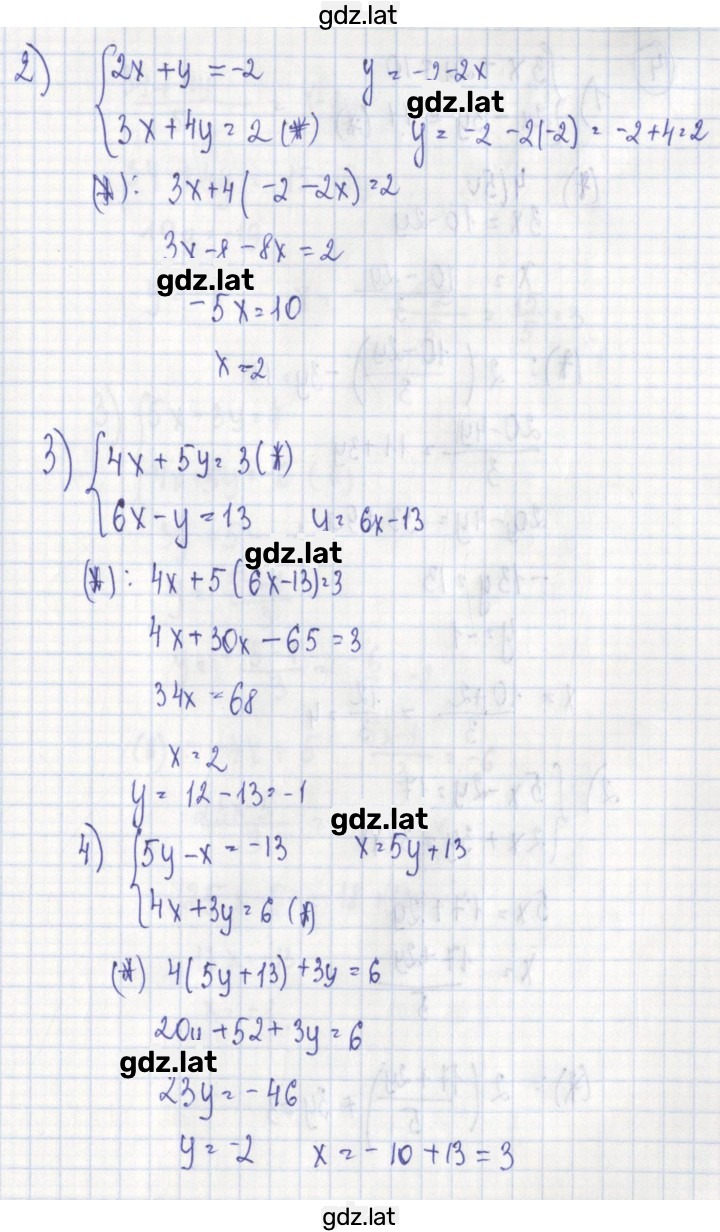 gdz.lat
2) {2x + y = -2 y = -2-2x
gdz.lat
3x + 4y = 2 (*) y = -2 -2(-2) = -2+4=2
(*): 3x+4( -2 -2x)=2
3x-8-8x = 2
gdz.lat
-5x=10
x=-2
3) {4x + 5y = 3 (*)
6x - y = 13 y = 6x-13
gdz.lat
(*): 4x + 5(6x-13)=3
4x+30x-65=3
34x = 68
x = 2
y = 12-13=-1
gdz.lat
4) {5y-x = -13 x=5y+13
4x+3y=6 (*)
(*) 4(5y+13)+3y=6
20y+52+3y=6
gdz.lat
23y=-46
y=-2 x=-10+13=3
gdz.lat